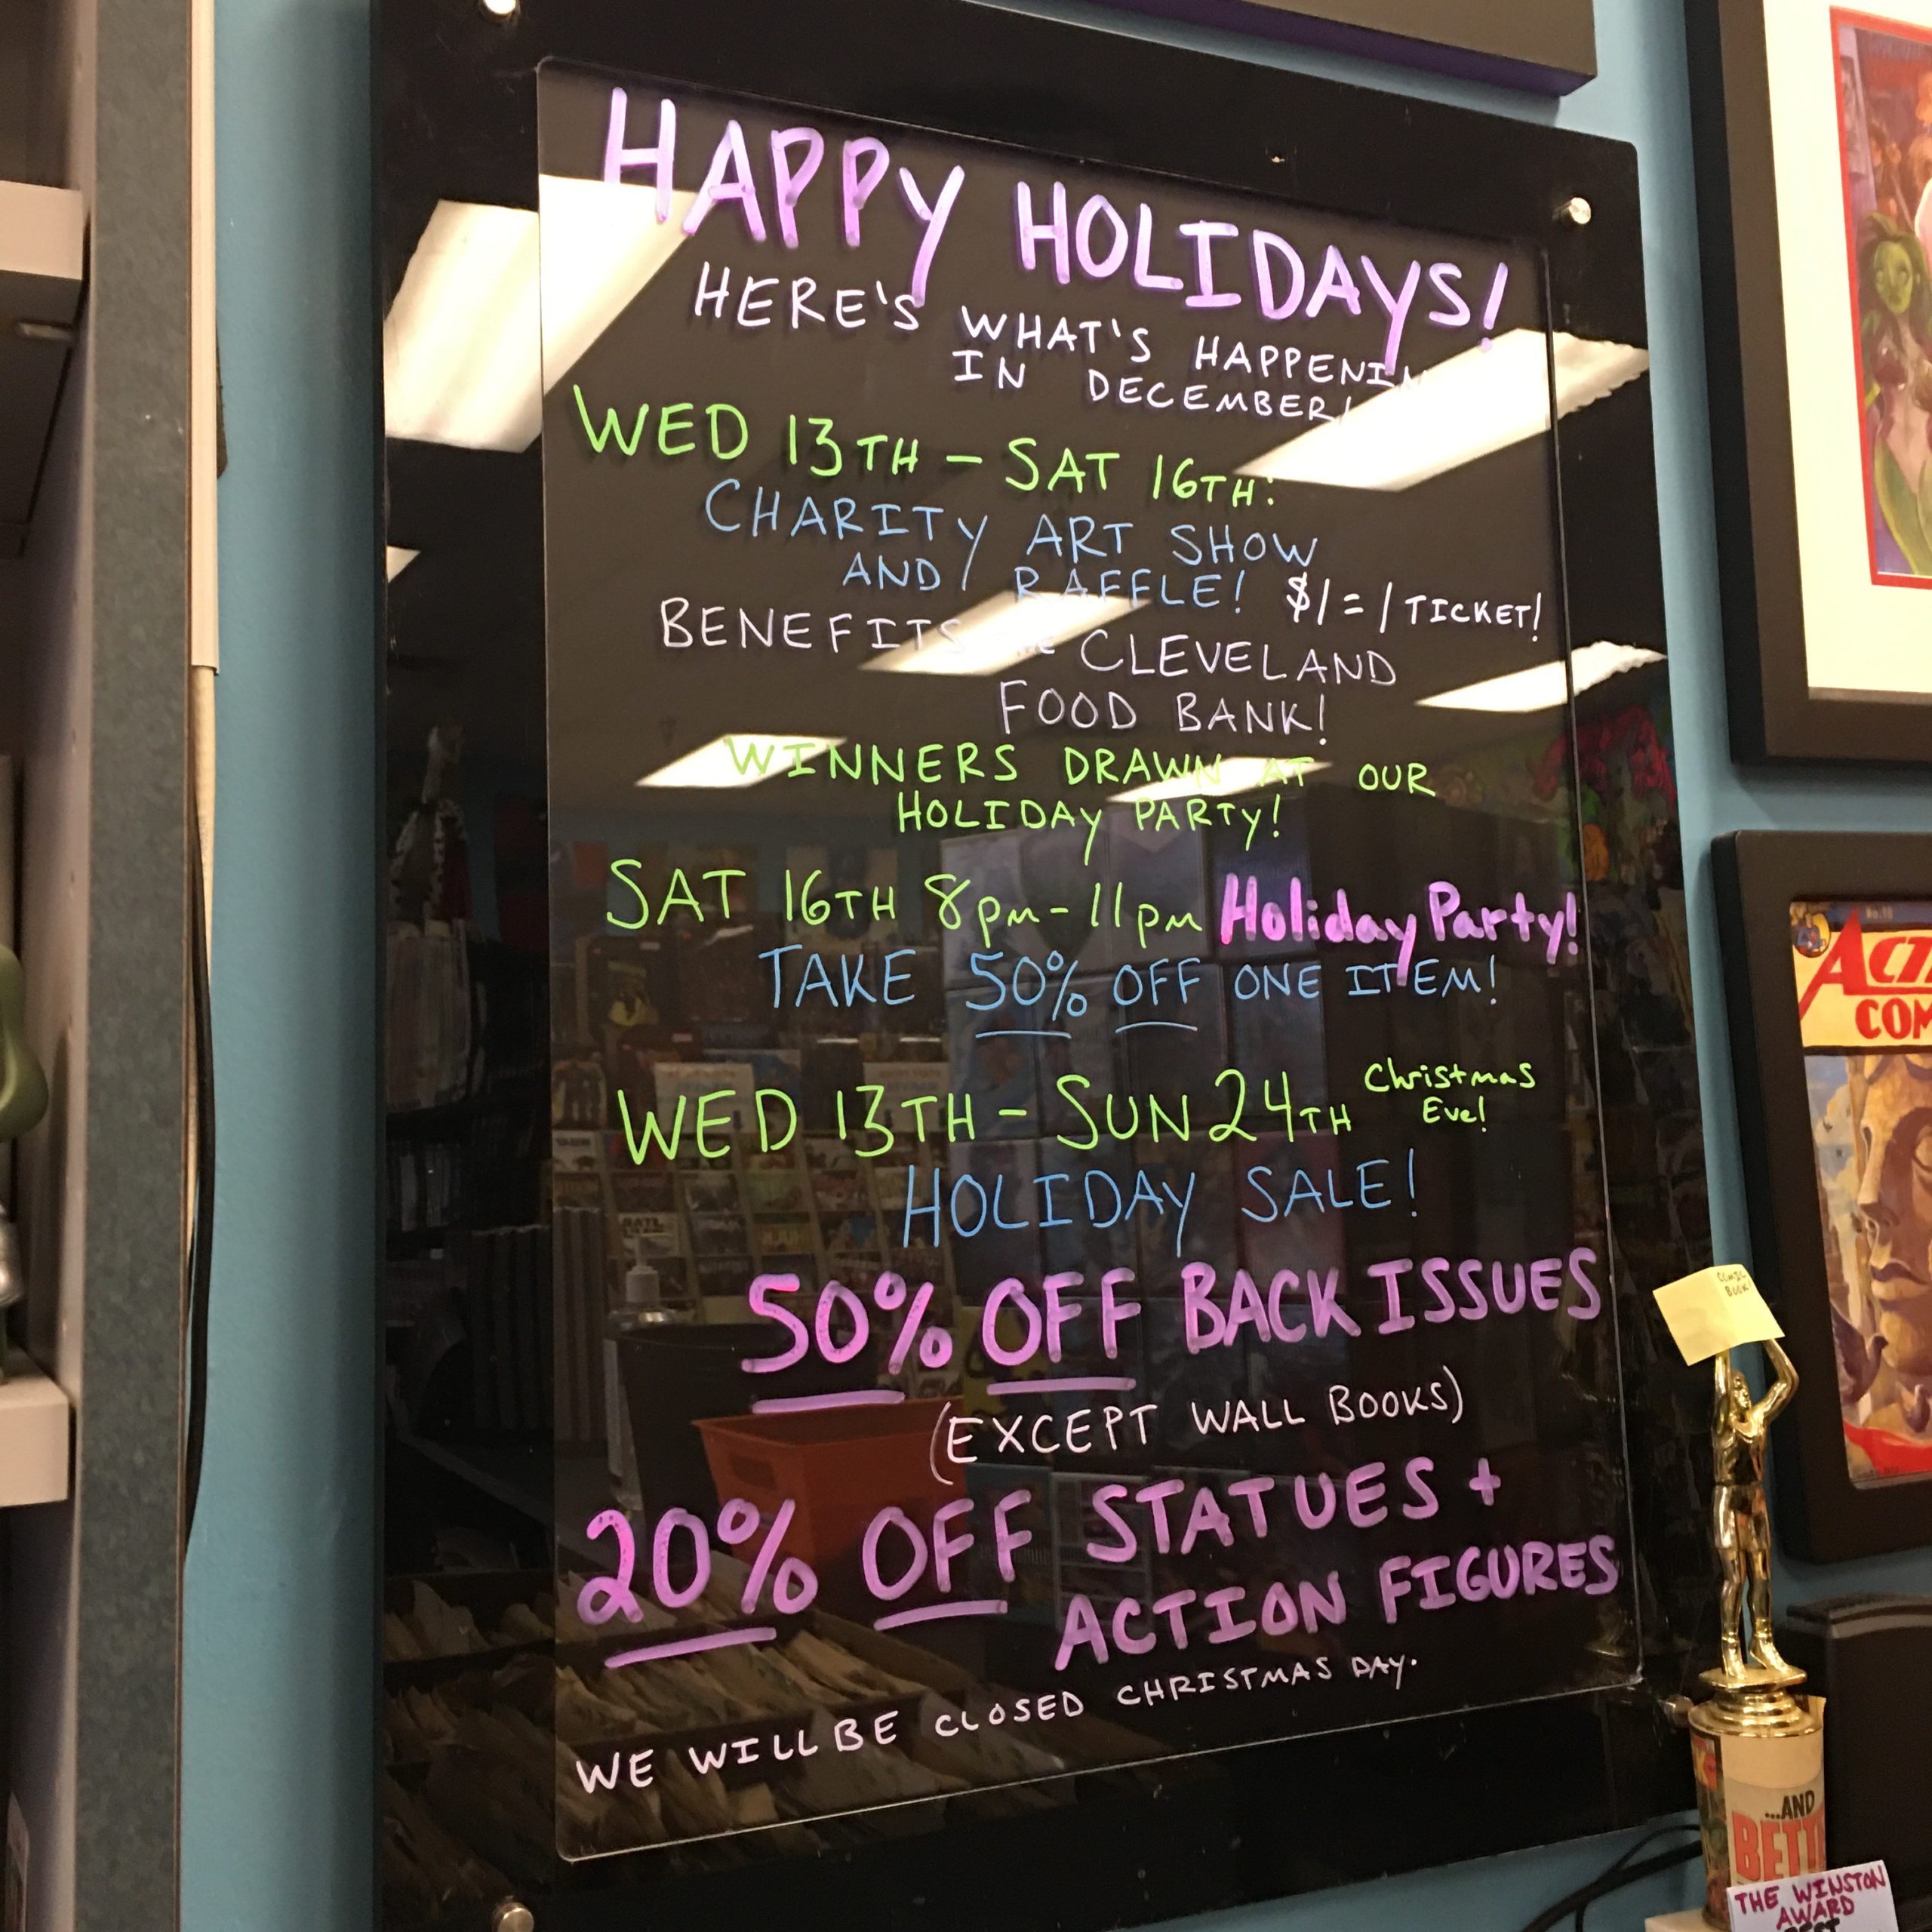 HAPPY HOLIDAYS!
HERE'S WHAT'S HAPPENIN
IN DECEMBER!
WED 13TH - SAT 16TH:
CHARITY ART SHOW
AND RAFFLE! $1 = 1 TICKET!
BENEFITS THE CLEVELAND
FOOD BANK!
WINNERS DRAWN AT OUR
HOLIDAY PARTY!
SAT 16TH 8pm-11pm Holiday Party!
TAKE 50% OFF ONE ITEM!
WED 13TH - SUN 24TH Christmas
Eve!
HOLIDAY SALE!
50% OFF BACK ISSUES
(EXCEPT WALL BOOKS)
20% OFF STATUES +
ACTION FIGURES
WE WILL BE CLOSED CHRISTMAS DAY.
No.
ACT
COM
COMIC
BOOK
...AND
BETT
THE WINSTON
AWARD